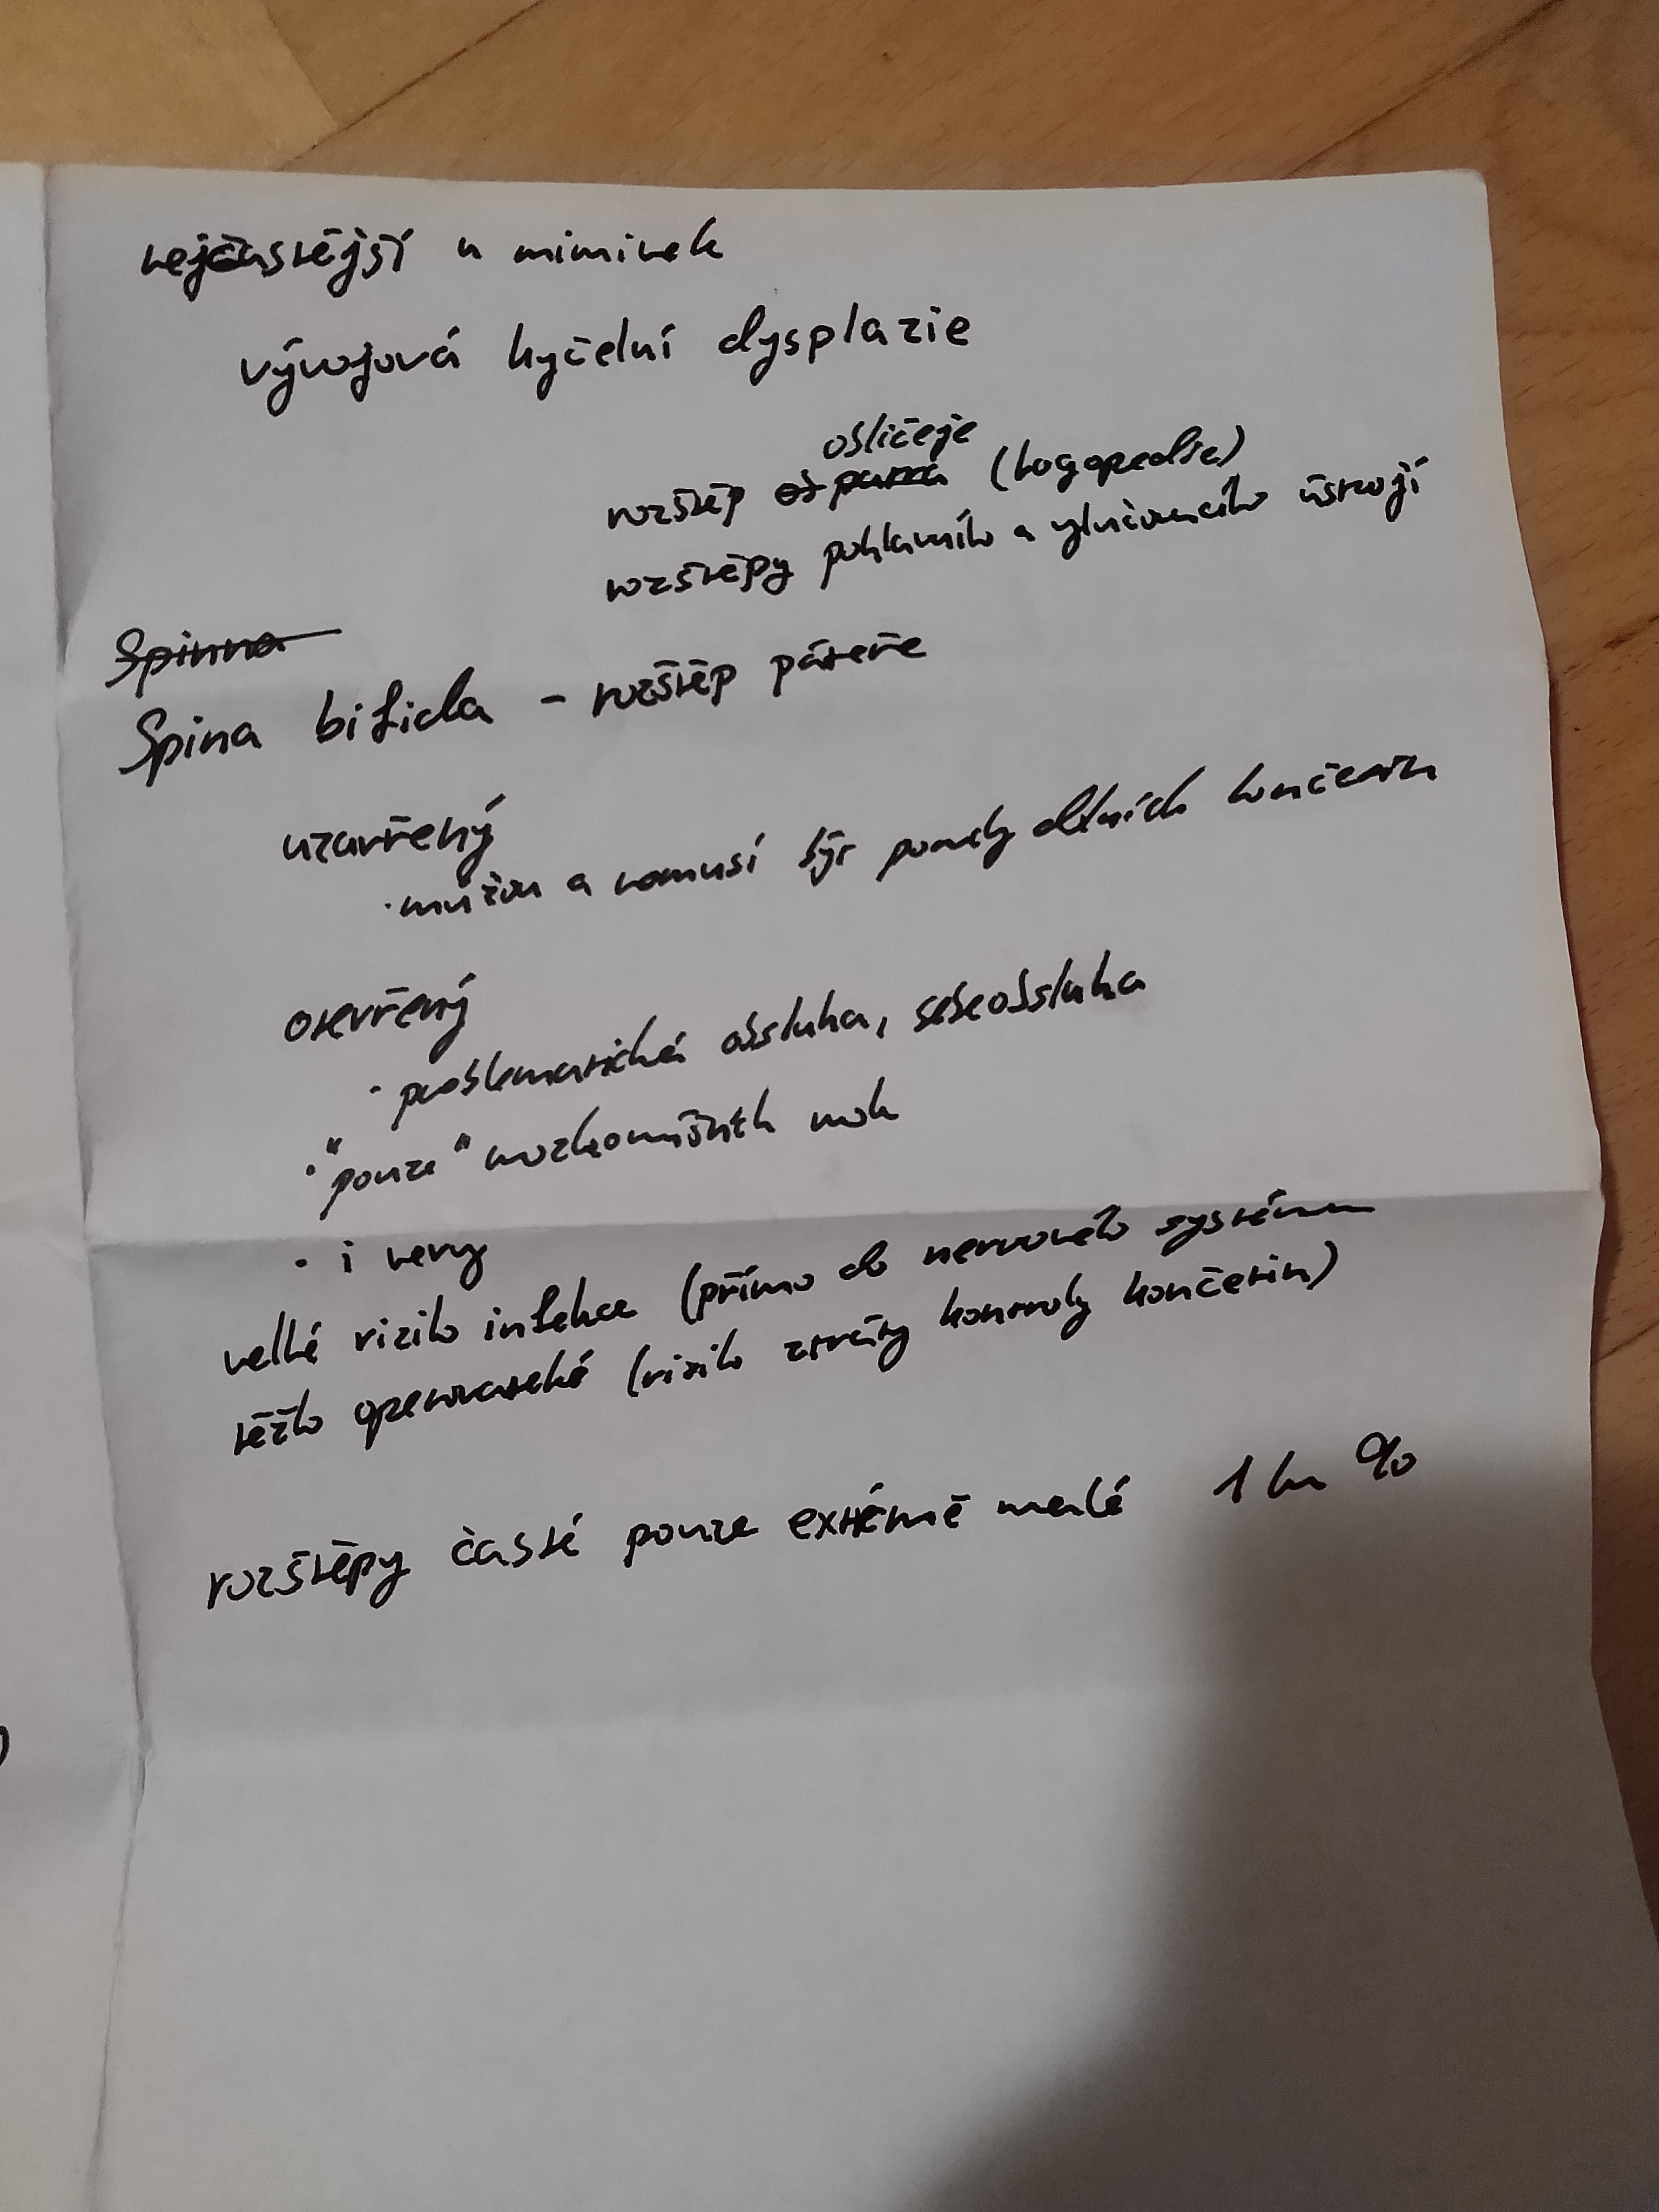 nejčastější u miminek
vývojová kyčelní dysplazie
obličeje
rozštěp (logopedie)
rozštěpy pohlavního a vylučovacího ústrojí
Spinna
Spina bifida - rozštěp páteře
uzavřený
· můžou a nemusí být poruchy dolních končetin
otevřený
· problematická obsluha, sebeobsluha
· "pouze" mozkomíšních mok
· i nervy
velké riziko infekce (přímo do nervového systému
těžko operovatelné (riziko ztráty kontroly končetin)
rozštěpy časté pouze extrémě malé 1 ku %